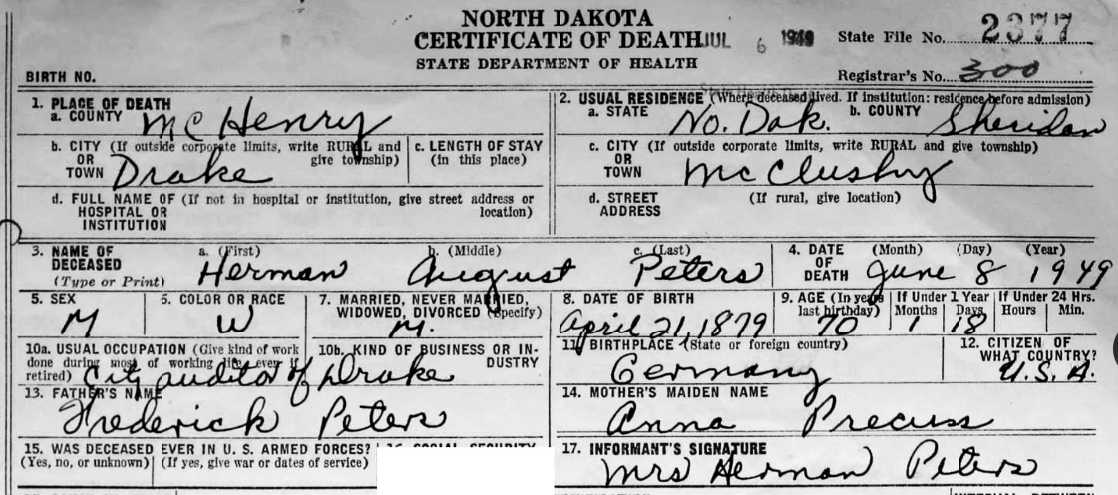 NORTH DAKOTA
CERTIFICATE OF DEATH JUL 6 1949 State File No. 2377
STATE DEPARTMENT OF HEALTH
BIRTH NO. Registrar's No. 300
1. PLACE OF DEATH 2. USUAL RESIDENCE (Where deceased lived. If institution: residence before admission)
a. COUNTY McHenry a. STATE No. Dak. b. COUNTY Sheridan
b. CITY (If outside corporate limits, write RURAL and give township) OR TOWN Drake c. LENGTH OF STAY (in this place) c. CITY (If outside corporate limits, write RURAL and give township) OR TOWN McClusky
d. FULL NAME OF (If not in hospital or institution, give street address or location) HOSPITAL OR INSTITUTION d. STREET ADDRESS (If rural, give location)
3. NAME OF DECEASED (Type or Print) a. (First) Herman b. (Middle) August c. (Last) Peters 4. DATE OF DEATH (Month) June (Day) 8 (Year) 1949
5. SEX M 6. COLOR OR RACE W 7. MARRIED, NEVER MARRIED, WIDOWED, DIVORCED (Specify) M. 8. DATE OF BIRTH April 21, 1879 9. AGE (In years last birthday) 70 If Under 1 Year Months 1 Days 18 If Under 24 Hrs. Hours Min.
10a. USUAL OCCUPATION (Give kind of work done during most of working life, even if retired) City auditor of Drake 10b. KIND OF BUSINESS OR INDUSTRY 11. BIRTHPLACE (State or foreign country) Germany 12. CITIZEN OF WHAT COUNTRY? U.S.A.
13. FATHER'S NAME Frederick Peters 14. MOTHER'S MAIDEN NAME Anna Precuss
15. WAS DECEASED EVER IN U. S. ARMED FORCES? (Yes, no, or unknown) (If yes, give war or dates of service) 16. SOCIAL SECURITY 17. INFORMANT'S SIGNATURE Mrs Herman Peters